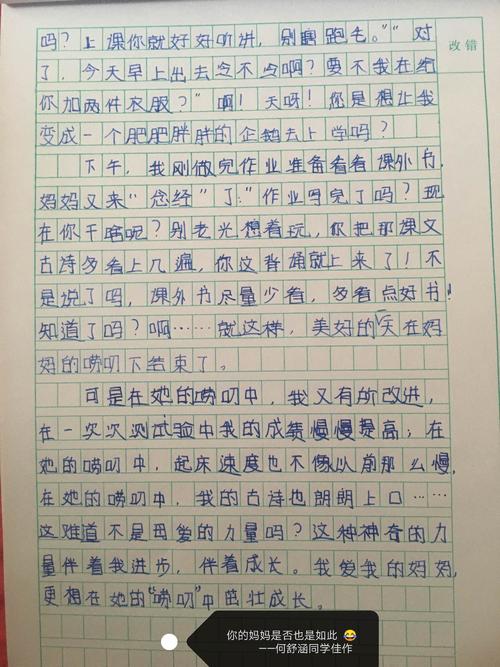 吗？上课你就好好听讲，别瞎跑毛。”“对
改错
了，今天早上出去冷不冷啊？要不我在给
你加两件衣服？”啊！天呀！您是想让我
变成一个肥肥胖胖的企鹅去上学吗？
下午，我刚做完作业准备看看课外书，
妈妈又来“念经”了：“作业写完了吗？现
在你干啥呢？别老光想着玩，你把那课文
古诗多看上几遍，你这背诵就上来了！不
是说了吗，课外书尽量少看，多看点好书！
知道了吗？啊……就这样，美好的一天在妈
妈的唠叨下结束了。
可是在她的唠叨中，我又有所改进，
在一次次测试验中我的成绩慢慢提高；在
她的唠叨中，起床速度也不像以前那么慢，
在她的唠叨中，我的古诗也朗朗上口……
这难道不是母爱的力量吗？这种神奇的力
量伴着我进步，伴着成长。我爱我的妈妈，
更想在她的“唠叨”中茁壮成长。
你的妈妈是否也是如此 😂
——何舒涵同学佳作